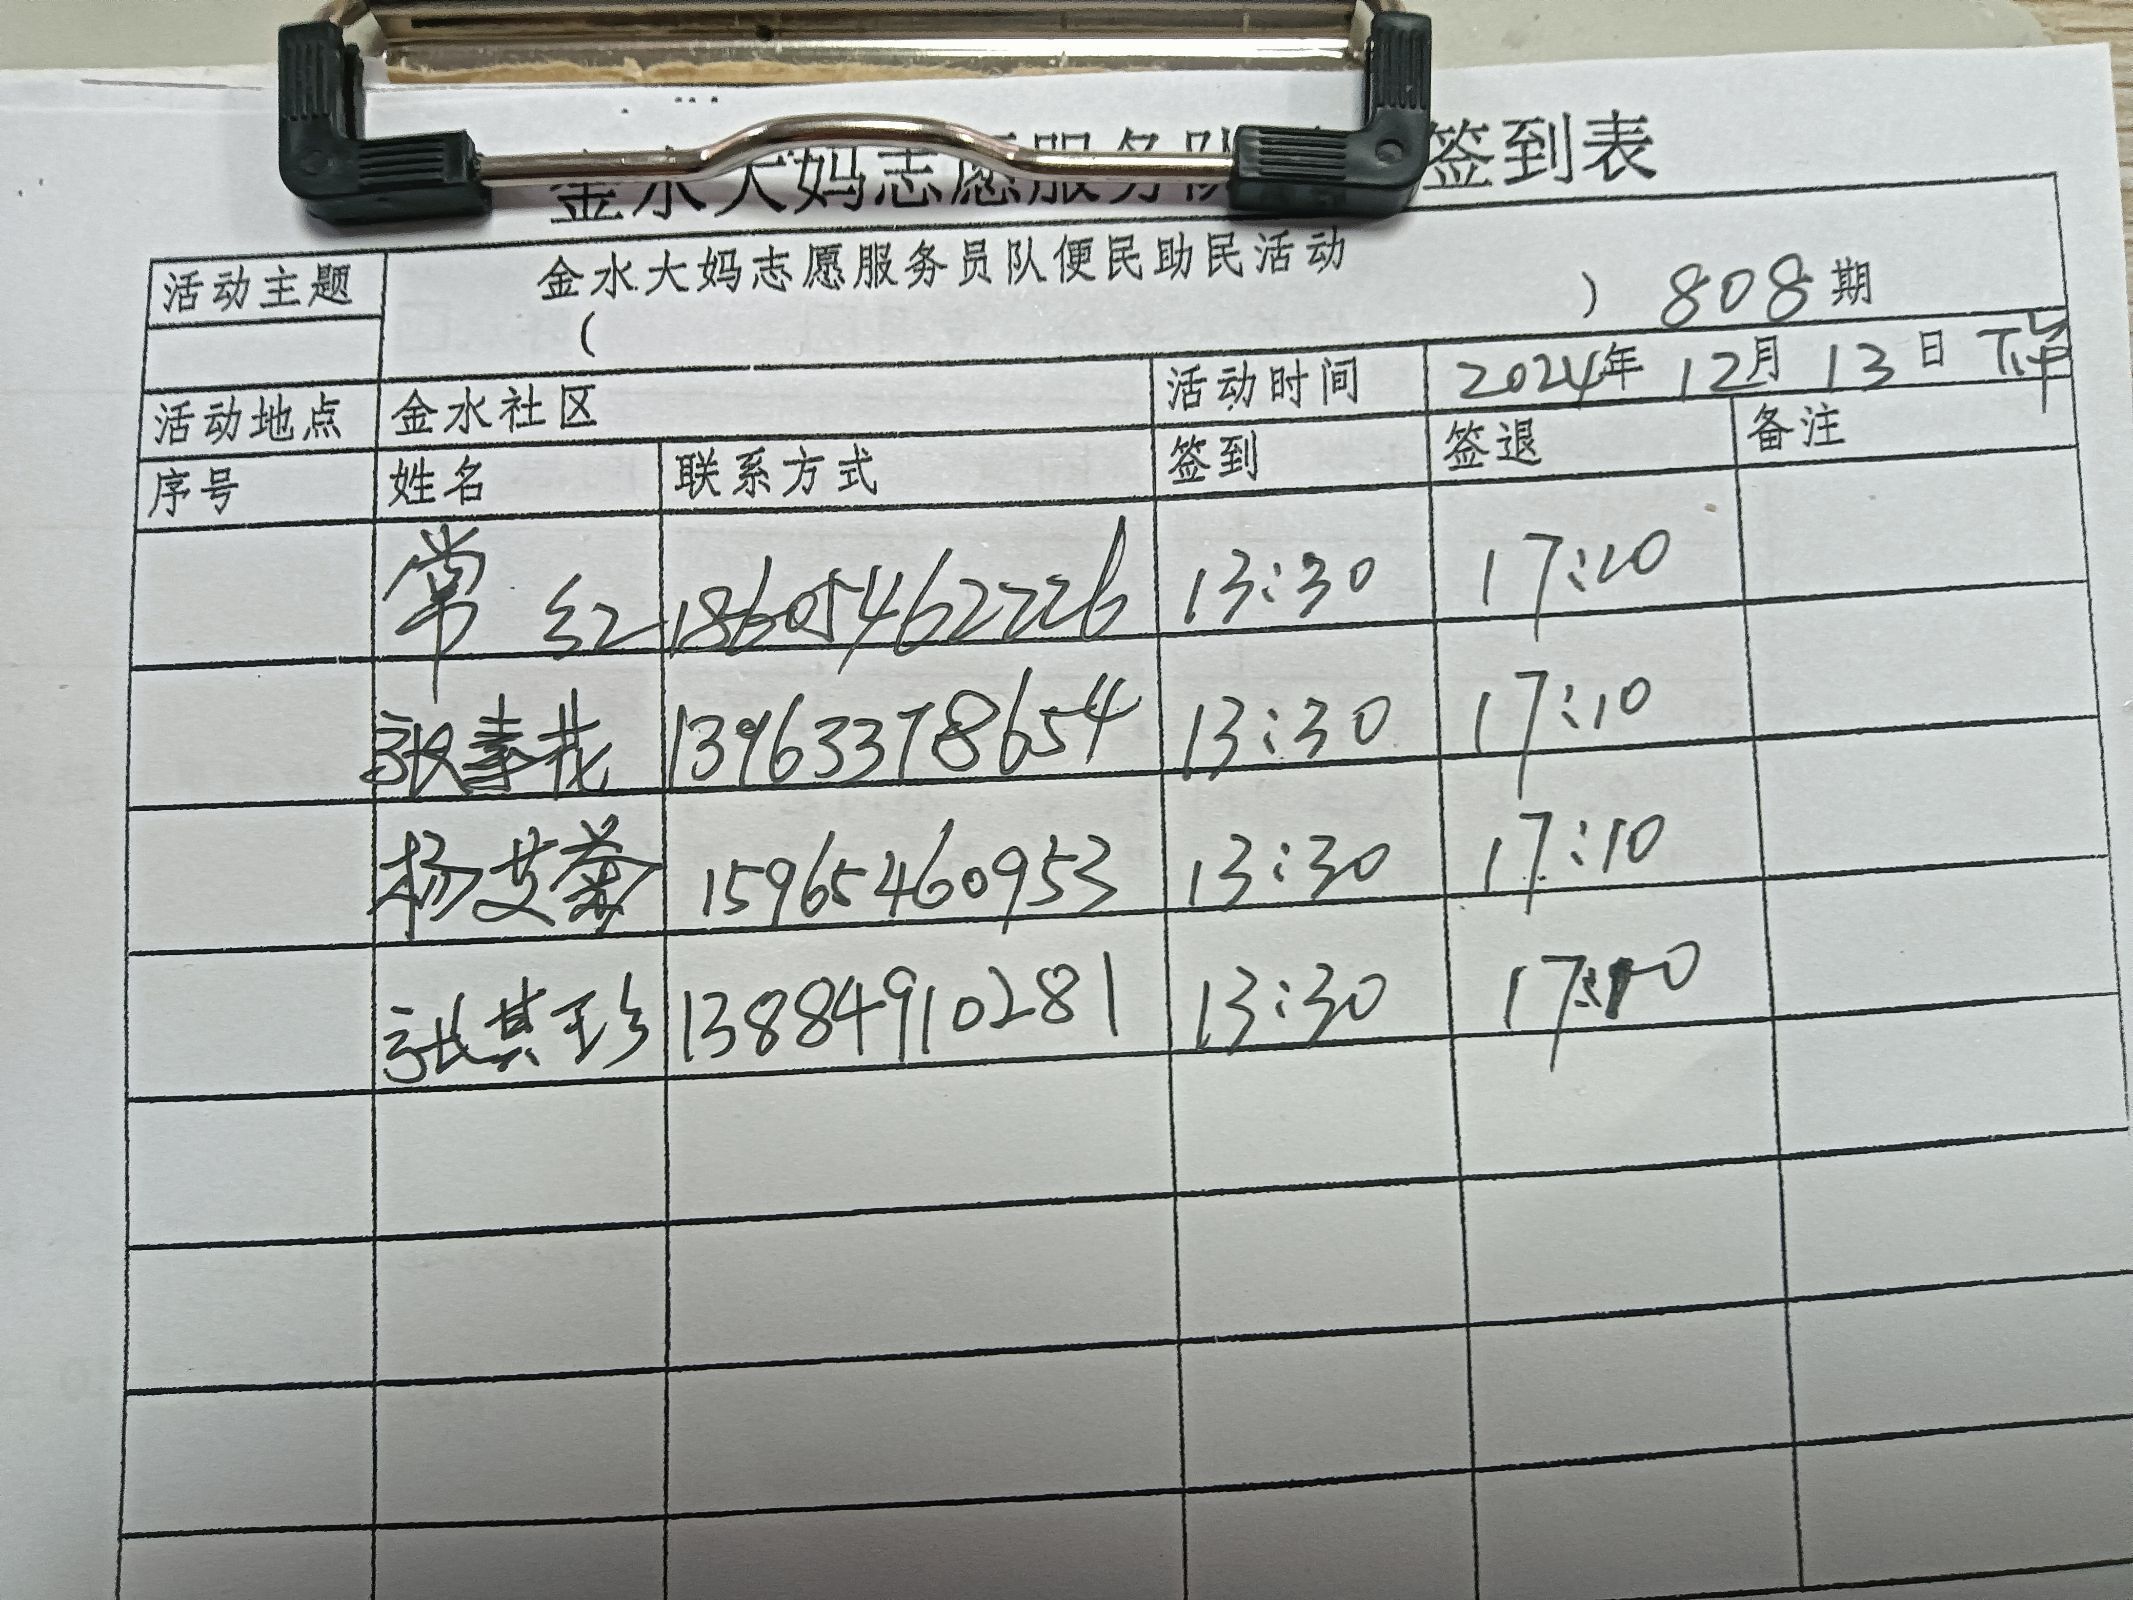 金水大妈志愿服务队 签到表
活动主题 金水大妈志愿服务员队便民助民活动
( ) 808期
活动地点 金水社区 活动时间 2024年 12月 13日 下午
序号 姓名 联系方式 签到 签退 备注
常红 18605462226 13:30 17:10
张素花 13963378654 13:30 17:10
杨艾菊 15965460953 13:30 17:10
张其珍 13884910281 13:30 17:10